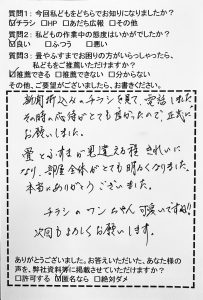 質問1：今回私もをどちらでお知りになりましたか？
☑チラシ □HP □あだち広報 □その他
質問2：私どもの作業中の態度はいかがでしたか？
☑良い □ふつう □悪い
質問3：畳やふすまでお困りの方がいらっしゃったら、
私どもをご推薦いただけますか？
☑推薦できる □推薦できない □分からない
その他、ご要望がございましたら、お書きください。
新聞折込みのチラシを見て、電話しました
その時の応待がとても良かったので、正式に
お願いしました。
畳とふすまが見違える程きれいに
なり、部屋全体がとても明るくなりました。
本当にありがとうございました。
チラシのワンちゃん可愛いですね!!
次回もよろしくお願いします。
ありがとうございました。お答えいただいた、あなた様の
声を、弊社資料等に掲載させていただけますか？
□許可する ☑匿名なら □絶対ダメ